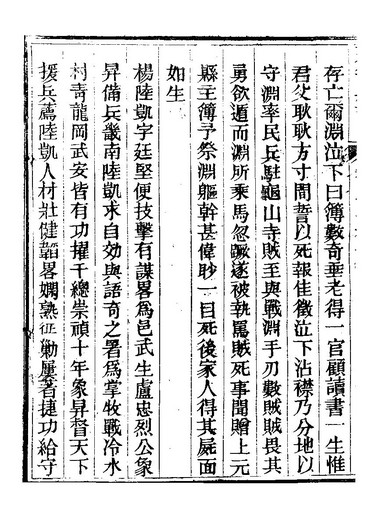 存亡爾淵泣下曰簿數奇垂老得一官顧讀書一生惟
君父耿耿方寸間誓以死報佳徵泣下沾襟乃分地以
守淵率民兵駐龜山寺賊至與戰淵手刃數賊賊畏其
勇欲遁而淵所乘馬忽蹶遂被執罵賊死事聞贈上元
縣主簿予祭淵軀幹甚偉眇一目死後家人得其屍面
如生
楊陸凱字廷堅便技擊有謀畧為邑武生盧忠烈公象
昇備兵畿南陸凱求自効與語奇之署為掌牧戰冷水
村青龍岡武安皆有功擢千總崇禎十年象昇督天下
援兵薦陸凱人材壯健韜畧嫻熟征勦屢著捷功給守